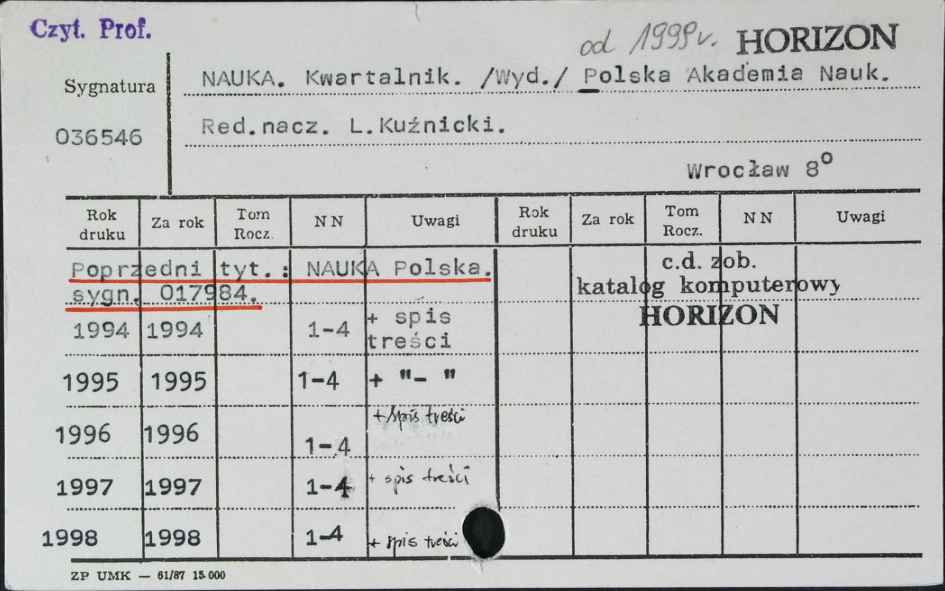 Czyt. Prof.
od 1999r. HORIZON
Sygnatura
036546
NAUKA. Kwartalnik. /Wyd./ Polska Akademia Nauk.
Red.nacz. L.Kuźnicki.
Wrocław 8°
Rok druku Za rok Tom Rocz. NN Uwagi Rok druku Za rok Tom Rocz. NN Uwagi
Poprzedni tyt.: NAUKA Polska.
sygn. 017984.
c.d. zob.
katalog komputerowy
HORIZON
1994 1994 1-4 + spis treści
1995 1995 1-4 + "- "
1996 1996 1-4 + spis treści
1997 1997 1-4 + spis treści
1998 1998 1-4 + spis treści
ZP UMK — 61/87 15.000